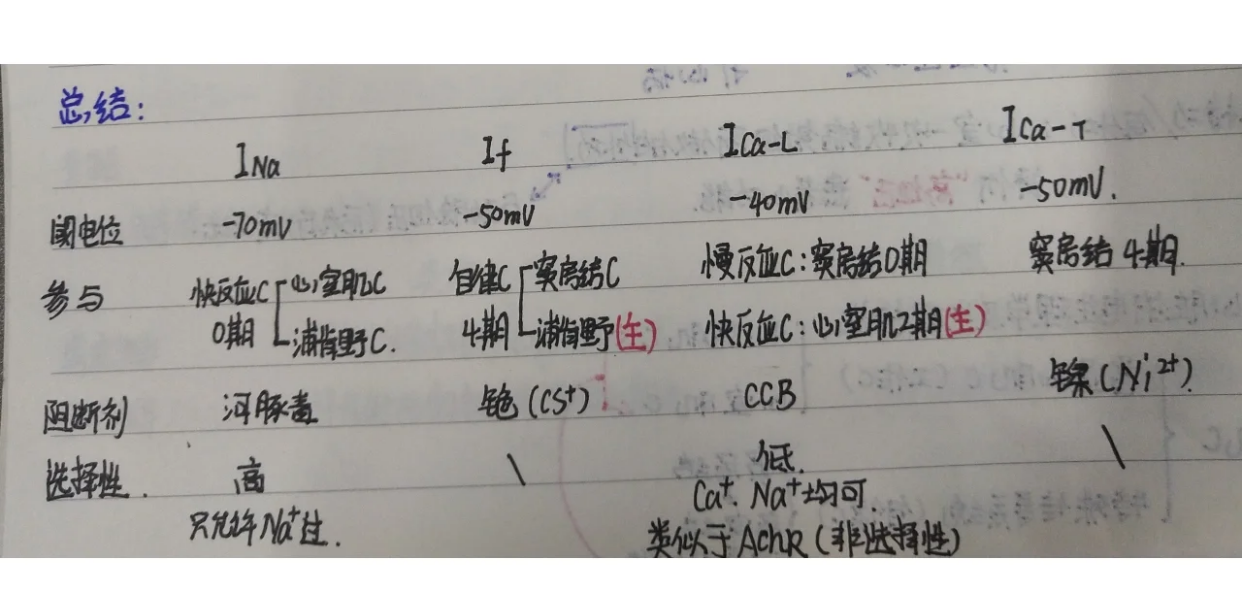 总结:
INa If ICa-L ICa-T
阈电位 -70mV -50mV -40mV -50mV.
参与 快反应C 心室肌C 自律C 窦房结C 慢反应C:窦房结0期 窦房结4期.
0期 浦肯野C. 4期 浦肯野(主) 快反应C:心室肌2期(主)
阻断剂 河豚毒 铯(CS+) CCB 镍(Ni2+).
选择性. 高 \ 低. \
只允许Na+过. Ca+. Na+均可.
类似于AchR(非选择性)